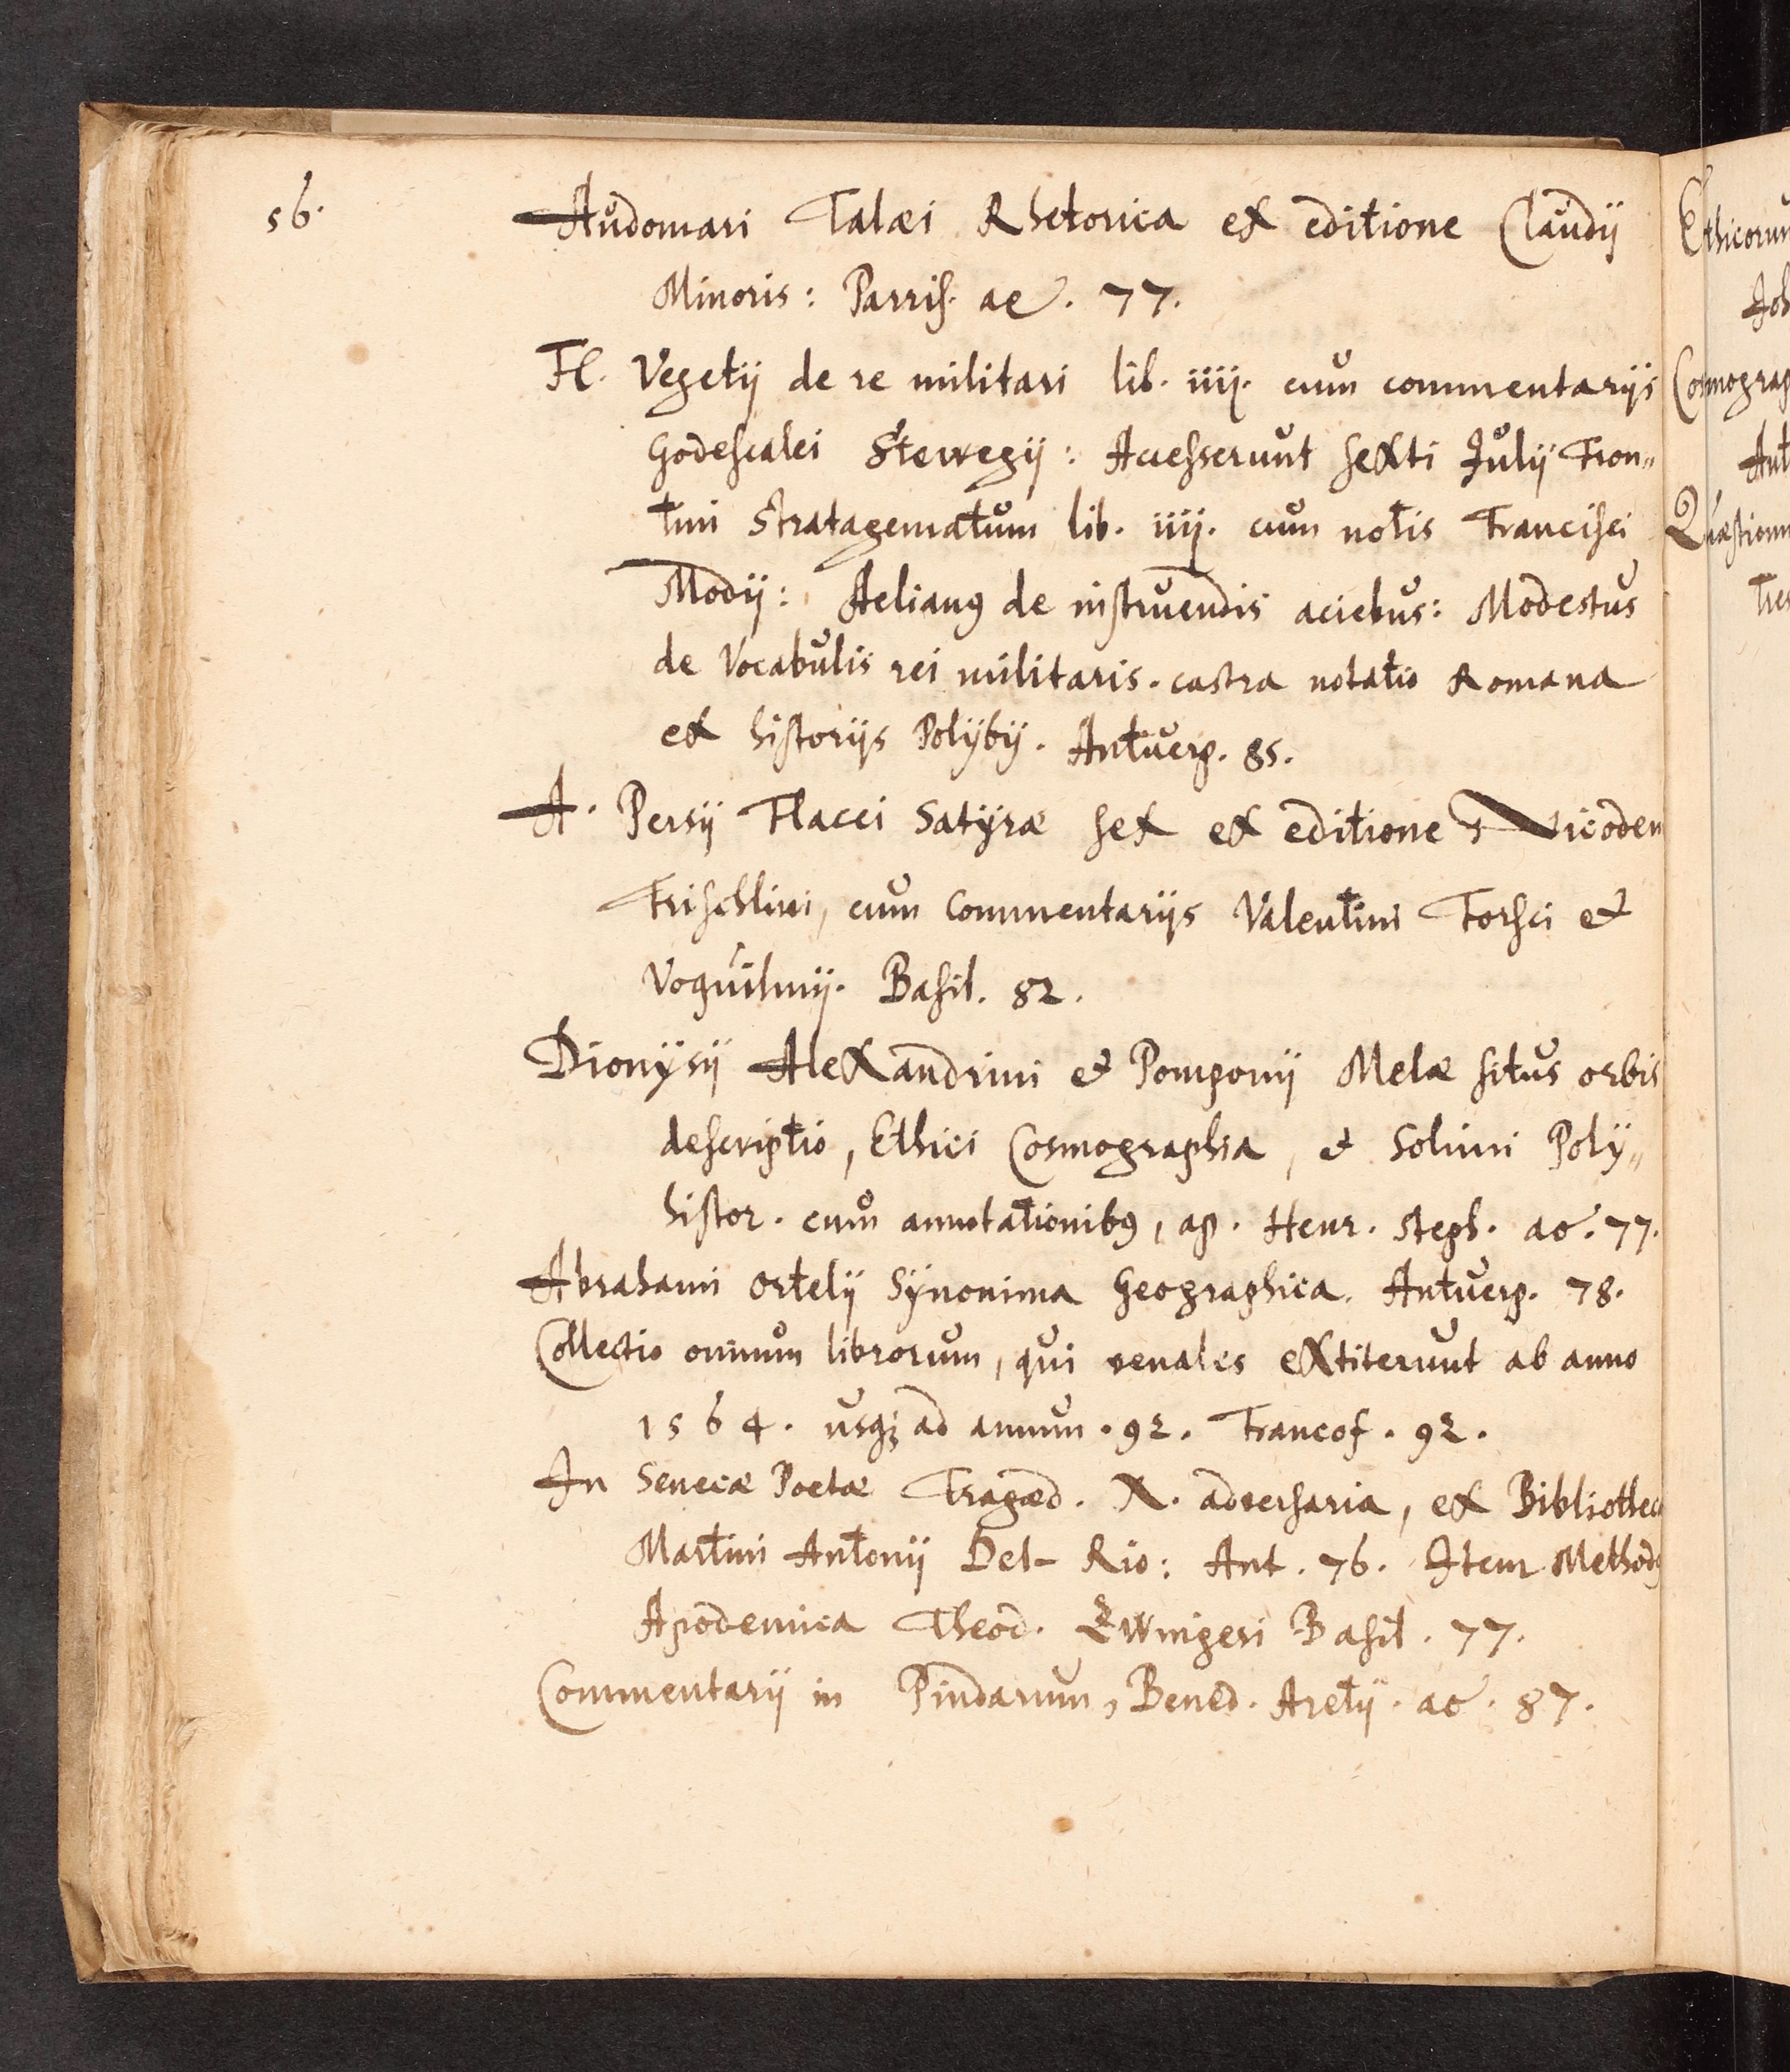 56.
Audomari Talæi Rhetorica ex editione Claudij
Minoris: Parris. ao. 77.
Fl. Vegetij de re militari lib. iiij. cum commentarijs
Godescalci Stewegij: Accesserunt sexti Julij Fron„
tini Stratagematum lib. iiij. cum notis Francisci
Modij: Aelianꝰ de instruendis aciebus: Modestus
de Vocabulis rei militaris. castra notatio Romana
ex historijs Polÿbij. Antuerp. 85.
A. Persij Flacci Satÿræ sex ex editione Nicodem
Frischlini, cum Commentarijs Valentini Forsci et
Voguilmij. Basil. 82.
Dionÿsij Alexandrini et Pomponij Melæ situs orbis
descriptio, Ethici Cosmographia, et Solini Polÿ„
histor. cum annotationibꝰ, ap. Henr. Steph. ao. 77.
Abrahami Ortelij Sÿnonima Geographica. Antuerp. 78.
Collectio omnium librorum, qui venales extiterunt ab anno
1564. usqꝫ ad annum. 92. Francof. 92.
In Senecæ Poetæ Tragæd. X. adversaria, ex Bibliothec
Martini Antonij Del-Rio: Ant. 76. Item Methodꝰ
Apodemica Theod. Zwingeri Basil. 77.
Commentarij in Pindarum, Bened. Aretij. ao. 87.
Ethicorum
Joh
Cosmograp
Ant
Quæstionu
Tres